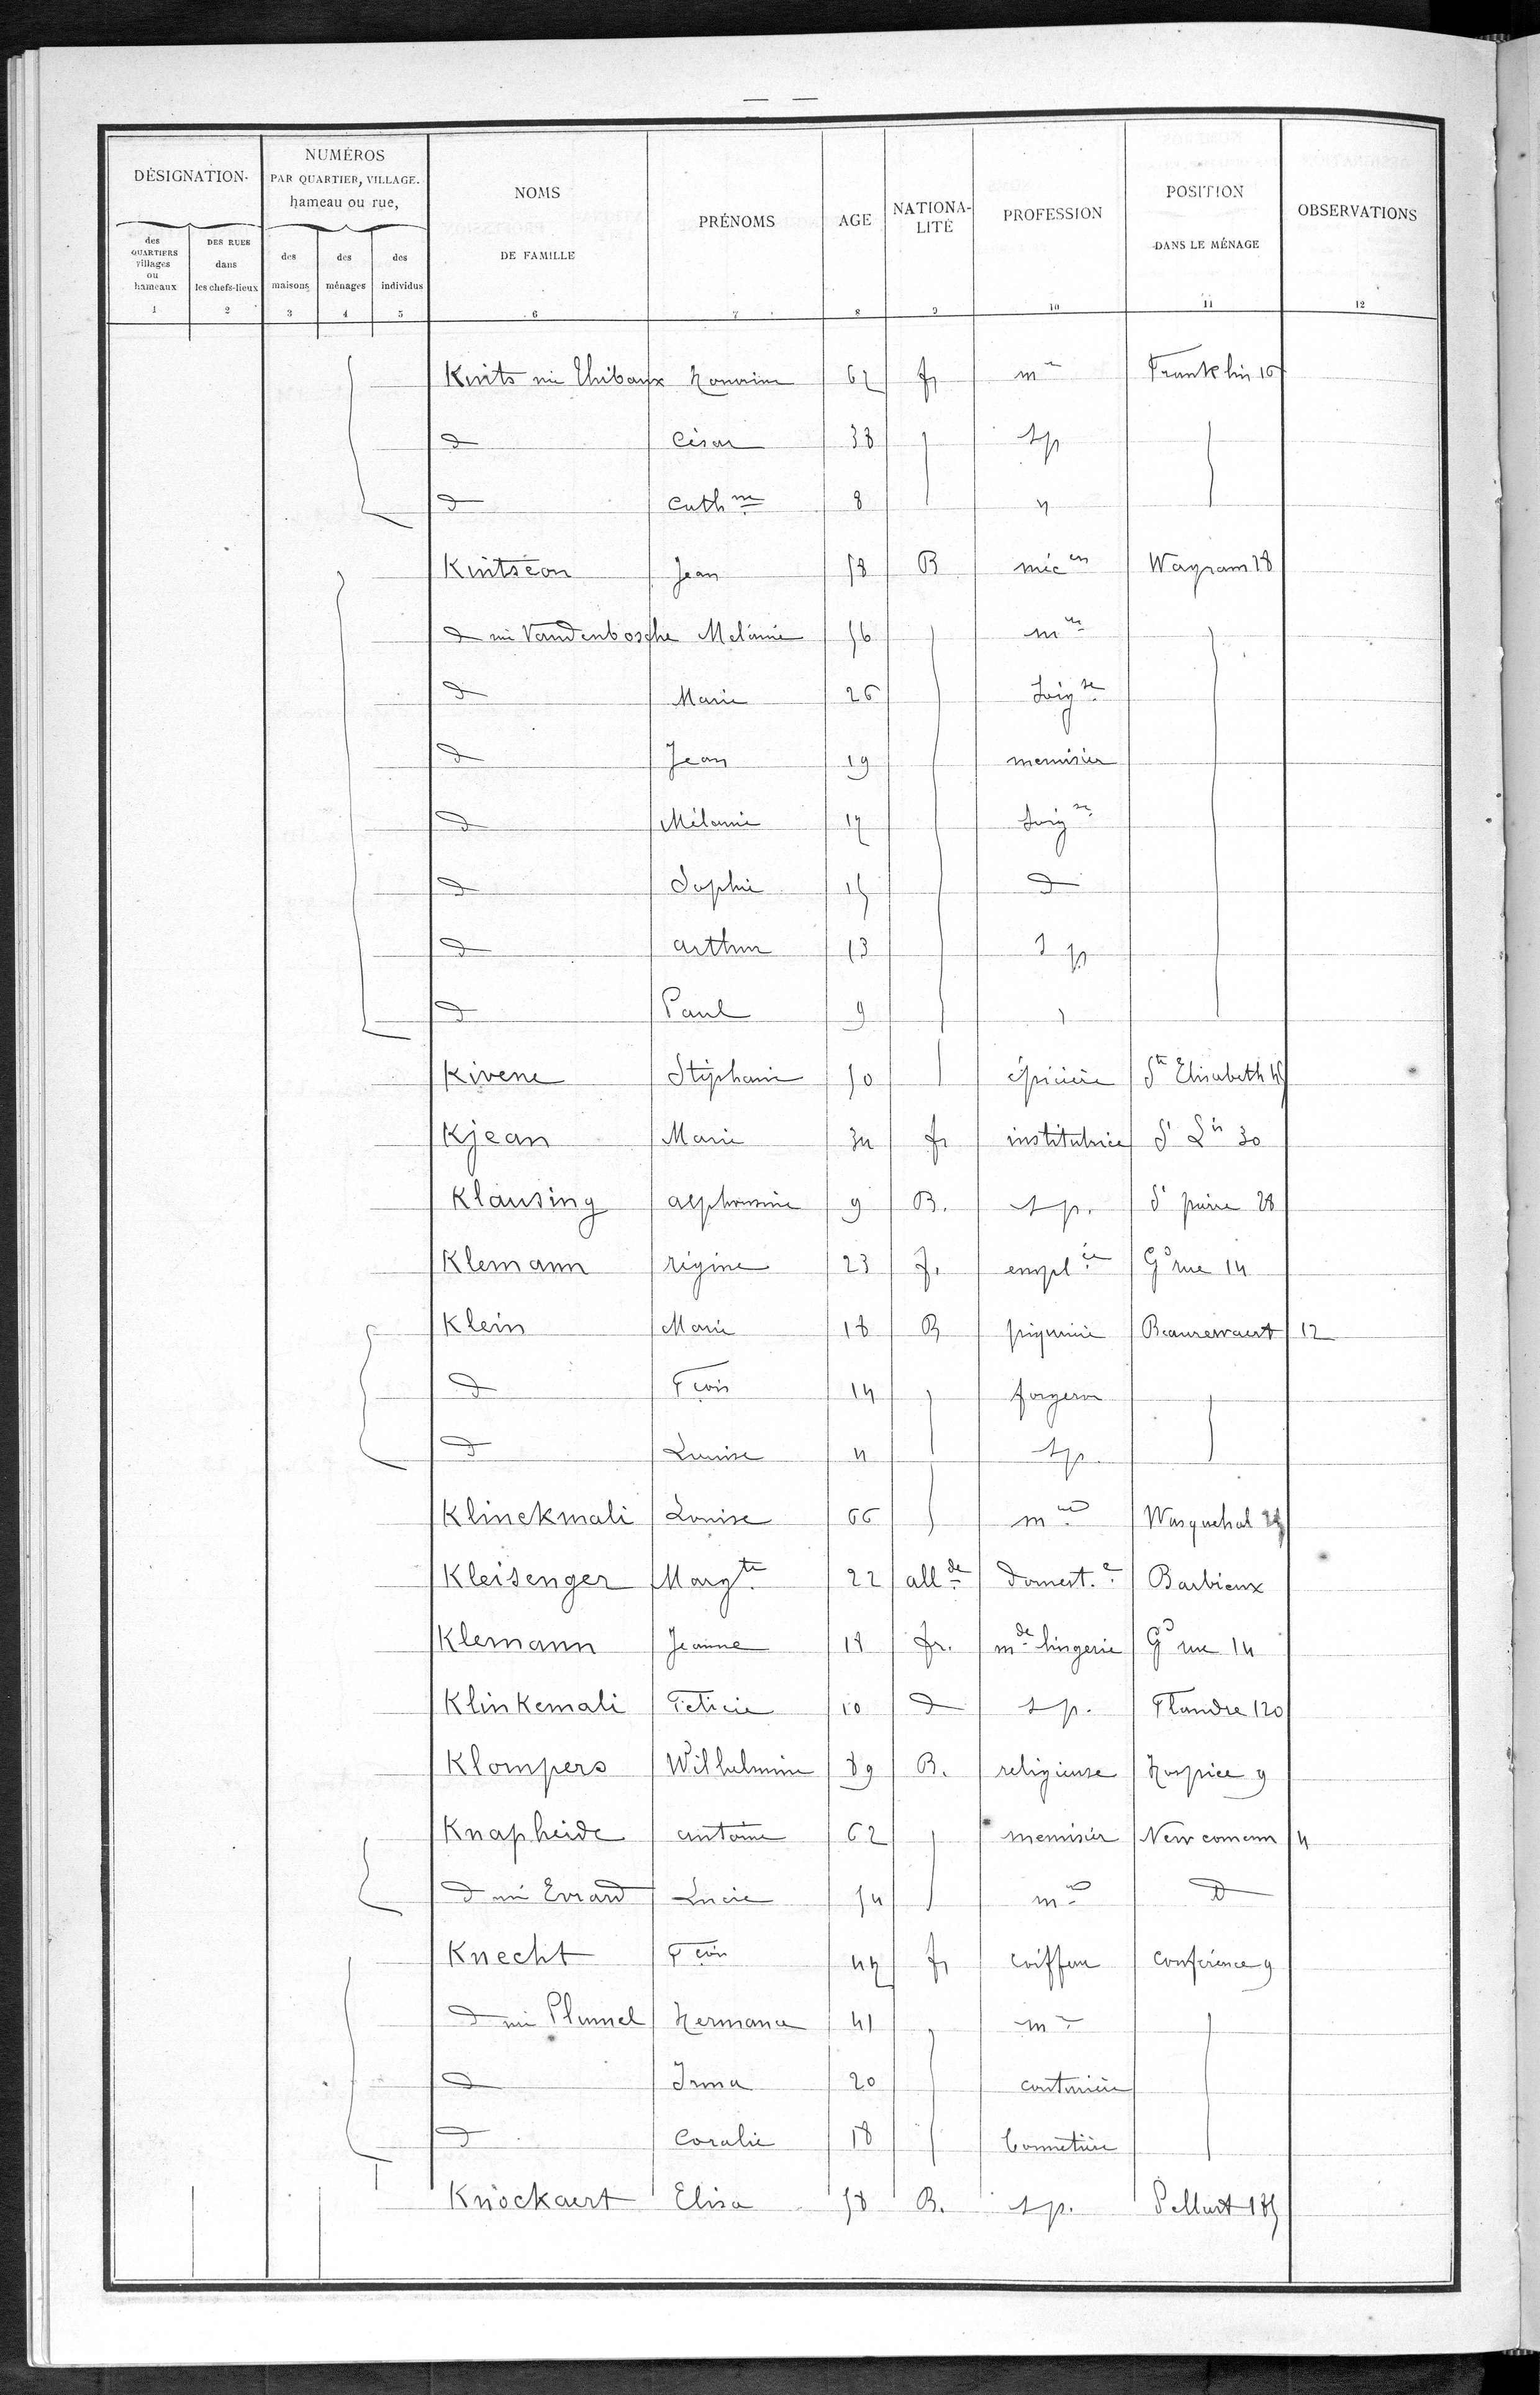 DÉSIGNATION
NUMÉROS
PAR QUARTIER, VILLAGE.
hameau ou rue,
NOMS
DE FAMILLE
PRÉNOMS
AGE
NATIONA-
LITÉ
PROFESSION
POSITION
DANS LE MÉNAGE
OBSERVATIONS
des QUARTIERS villages ou hameaux
DES RUES dans les chefs-lieux
des maisons
des ménages
des individus
1 2 3 4 5 6 7 8 9 10 11 12
Kints née Thibaux Honorine 62 fr mre Franklin 16
d César 38 sp
d Cathne 8 "
Kintséon Jean 58 B mécen Wagram 28
d née Vandenbosche Mélanie 56 mre
d Marie 26 soigse
d Jean 19 menuisier
d Mélanie 17 soigse
d Sophie 15 d
d arthur 13 s p
d Paul 9 "
Kivene Stéphanie 50 épicière Ste Elisabeth
Kjean Marie 34 fr institutrice St Lis 30
Klausing alphonsine 9 B. s p. St pierre 28
Klemann régine 23 f. emplée Gd rue 14
Klein Marie 18 B piqurière Beaurewaert 12
d Fçois 14 forgeron
d Louise 4 sp.
Klinckmali Louise 66 mre Wasquehal
Kleisenger Margte 22 allde domest.e Barbieux
Klemann Jeanne 18 fr. mde lingerie Gd rue 14
Klinkemali Félicie 10 d s p. Flandre 120
Klompers Wilhelmine 89 B. religieuse hospice 9
Knapheide antoine 62 menuisier New comenn 4
d née Evrard Lucie 54 mre d
Knecht Fçois 47 fr coiffeur conférence 9
d née Plumel Hermance 41 mre
d Irma 20 couturière
d Coralie 18 bonnetière
Knockaert Elisa 58 B. s p. Pellart 185